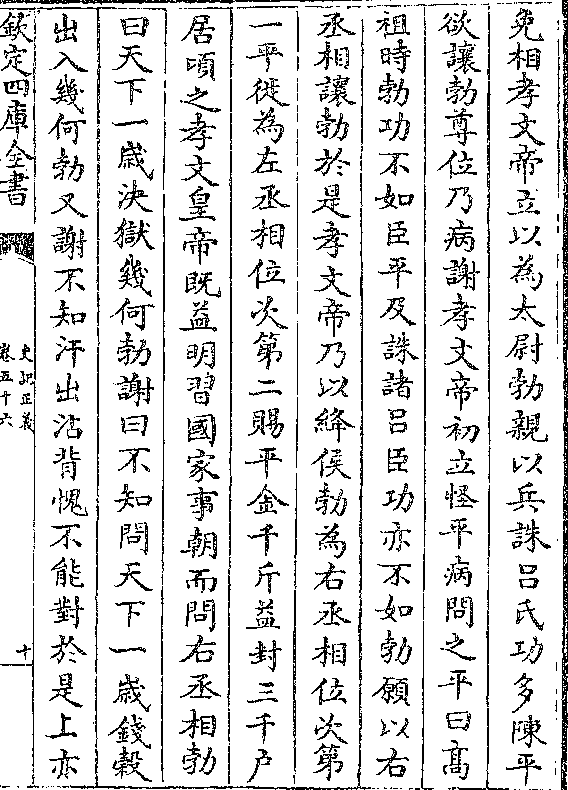 免相孝文帝立以為太尉勃親以兵誅呂氏功多陳平
欲讓勃尊位乃病謝孝文帝初立怪平病問之平曰髙
祖時勃功不如臣平及誅諸呂臣功亦不如勃願以右
丞相讓勃於是孝文帝乃以絳侯勃為右丞相位次第
一平徙為左丞相位次第二賜平金千斤益封三千户
居頃之孝文皇帝既益明習國家事朝而問右丞相勃
曰天下一歳決獄幾何勃謝曰不知問天下一歳錢穀
出入幾何勃又謝不知汗出沾背愧不能對於是上亦
欽定四庫全書
史記正義
卷五十六
十